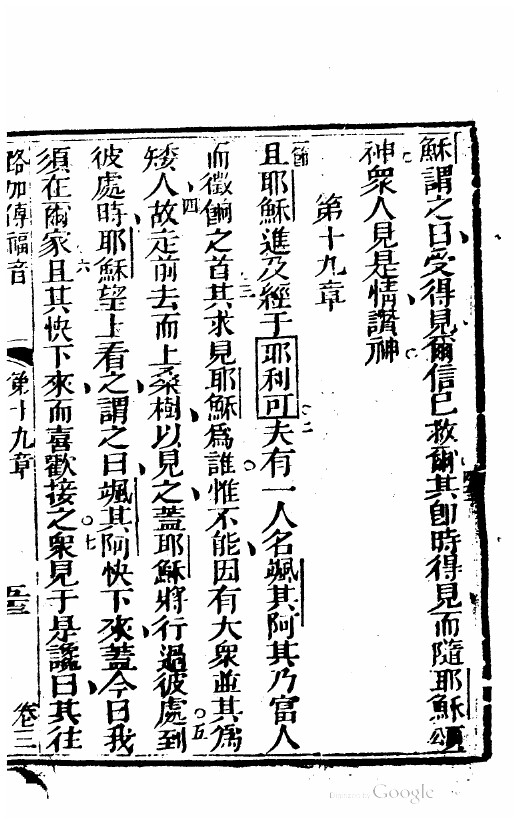 穌謂之曰受得見爾信已救爾其卽時得見而隨耶穌頌
神衆人見是情讚神
第十九章
節
且耶穌進及經于耶利可二夫有一人名颯其阿其乃富人
而徵餉之首三其求見耶穌爲誰惟不能因有大衆並其爲
矮人四故走前去而上桑樹以見之蓋耶穌將行過彼處五到
彼處時耶穌望上看之謂之曰颯其阿快下來蓋今日我
須在爾家六且其快下來而喜歡接之七衆見于是讒曰其往
路加傳福音 第十九章 卷三
Google